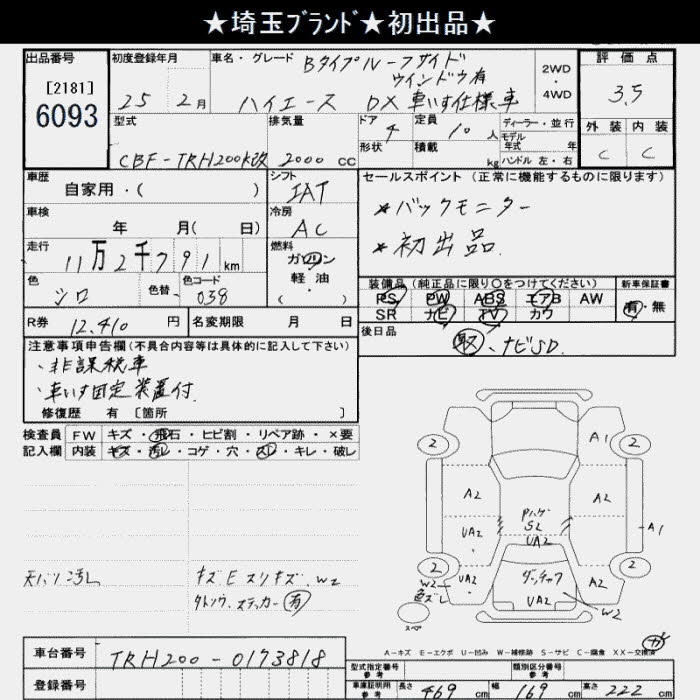 ★埼玉ﾌﾞﾗﾝﾄﾞ★初出品★
出品番号 初度登録年月 車名・グレード Bタイプルーフサイド 評価点
[2181] ウインドウ有 2WD
6093 25 2月 ハイエース DX 車いす仕様車 4WD 3.5
型式 排気量 ドア 4 定員 10 人 ディーラー・並行 外装 内装
モデル年式 年
CBF-TRH200K改 2000 CC 形状 積載 kg ハンドル 左・右 C C
車歴 シフト セールスポイント (正常に機能するものに限ります)
自家用・( ) IAT
車検 冷房 ★バックモニター
年 月( 日) AC
走行 燃料 ★初出品
11万2千791km ガソリン
色 色替 色コード 軽油 装備品 (純正品に限り〇をつけてください) 新車保証書
シロ 038 ・( ) PS PW ABS エアB AW 有・無
R券 12,410 円 名変期限 月 日 SR ナビ TV カワ
後日品
注意事項申告欄 (不具合内容等は具体的に記入して下さい) 取、ナビSD.
・非課税車
・車いす固定装置付
修復歴 有 [箇所 ]
検査員 FW キズ・飛石・ヒビ割・リペア跡・×要
記入欄 内装 キズ・汚レ・コゲ・穴・スレ・キレ・破レ
2 A1 2
A2 A2
Pハゲ
S2
UA2 UA2 UA2 A1
天バリ汚レ キズEスリキズ、W2 2 2
W2 UA2 A2
色ズレ UA2 W2
ステッカー 有
スペア
A-キズ E-エクボ U-凹み W-補修跡 S-サビ C-腐食 XX-交換済
車台番号 TRH200-0173818
型式指定番号 参考 類別区分番号 参考
登録番号 車庫証明用 参考 長さ 469 cm 幅 169 cm 高さ 222 cm